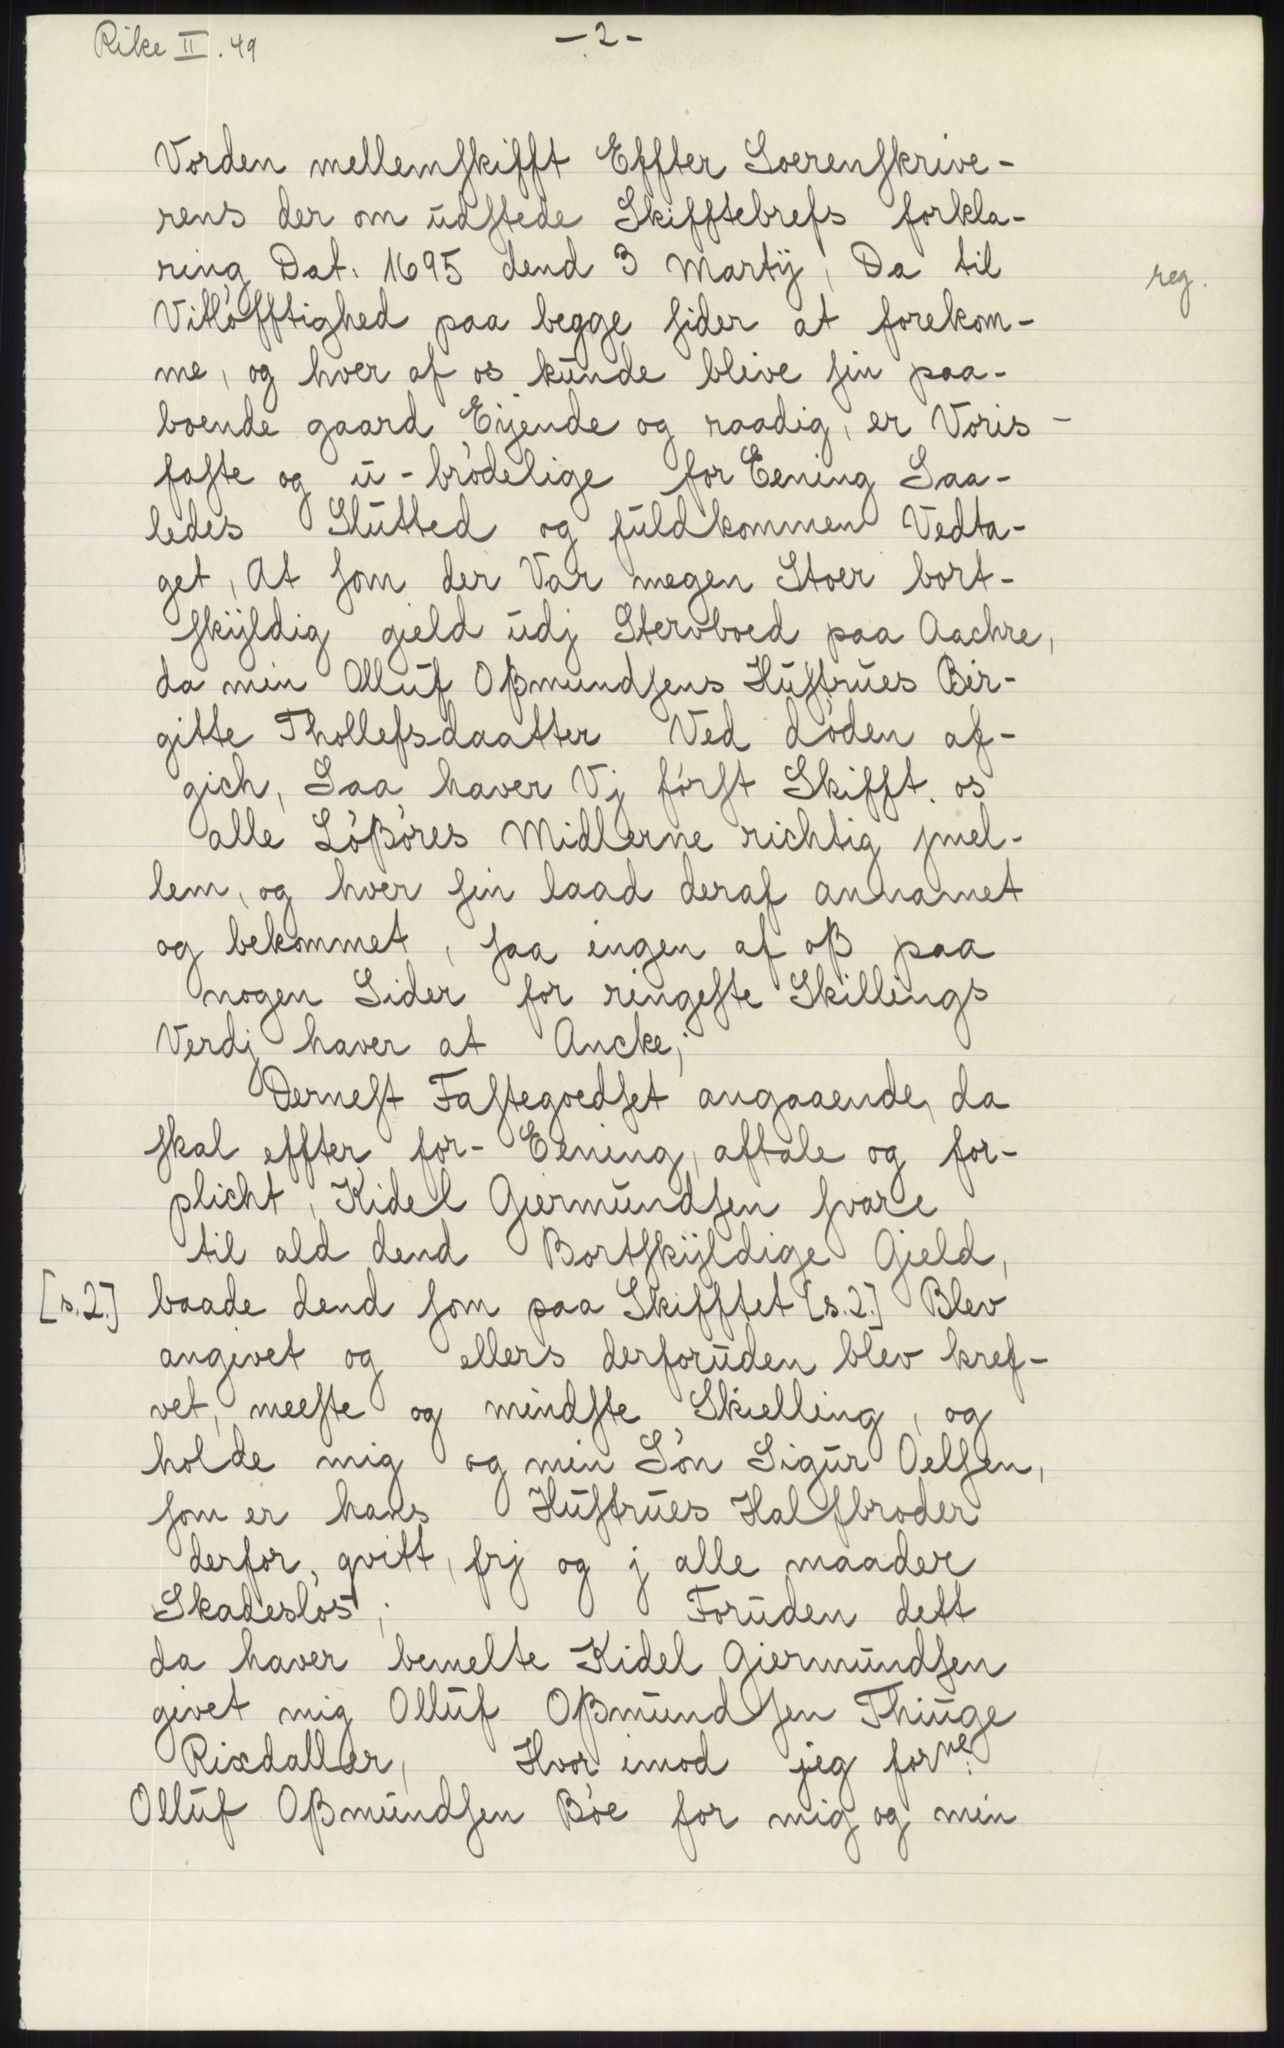 Rike II. 49
- 2 -
Vorden mellemskifft Effter Soerenskrive-
rens der om udstede Skifftebrefs forkla-
ring Dat. 1695 dend 3 Martij, Da til
reg.
Vitløfftighed paa begge sider at forekom-
me, og hver af os kunde blive sin paa-
boende gaard Eijende og raadig, er Voris-
faste og u-brødelige for Eening Saa-
ledes Slutted og fuldkommen Vedta-
get, At som der Var megen Stoer bort-
skÿldig gield udj Stervboed paa Aachre,
da min Olluf Oßmundsens Hustrues Bir-
gitte Thollefsdaatter Ved døden af-
gich, Saa haver Vj først Skifft. os
alle Løßøres Midlerne richtig jmel-
lem, og hver sin laad deraf annamet
og bekommet, saa ingen af oß paa
nogen Sider for ringeste Skillings
Verdj haver at Ancke;
Dernest Fastegoedset angaaende, da
skal effter for-Eening, aftale og for-
plicht, Kidel Giermundsen svare
til ald dend Bortskÿldige Gield,
[s.2.] baade dend som paa Skifftet [s.2.] Blev
angivet og ellers derforuden blev kref-
vet, meeste og mindste Skielling, og
holde mig og min Søn Sigur Oelsen,
som er hans Hustrues Halfbroder
derfor, qvitt, frj og j alle maader
Skadesløs; Foruden dett
da haver bemelte Kidel Giermundsen
givet mig Olluf Oßmundsen Thiuge
Rixdaller, Hvor imod jeg forne:
Olluf Oßmundsen Bøe for mig og min